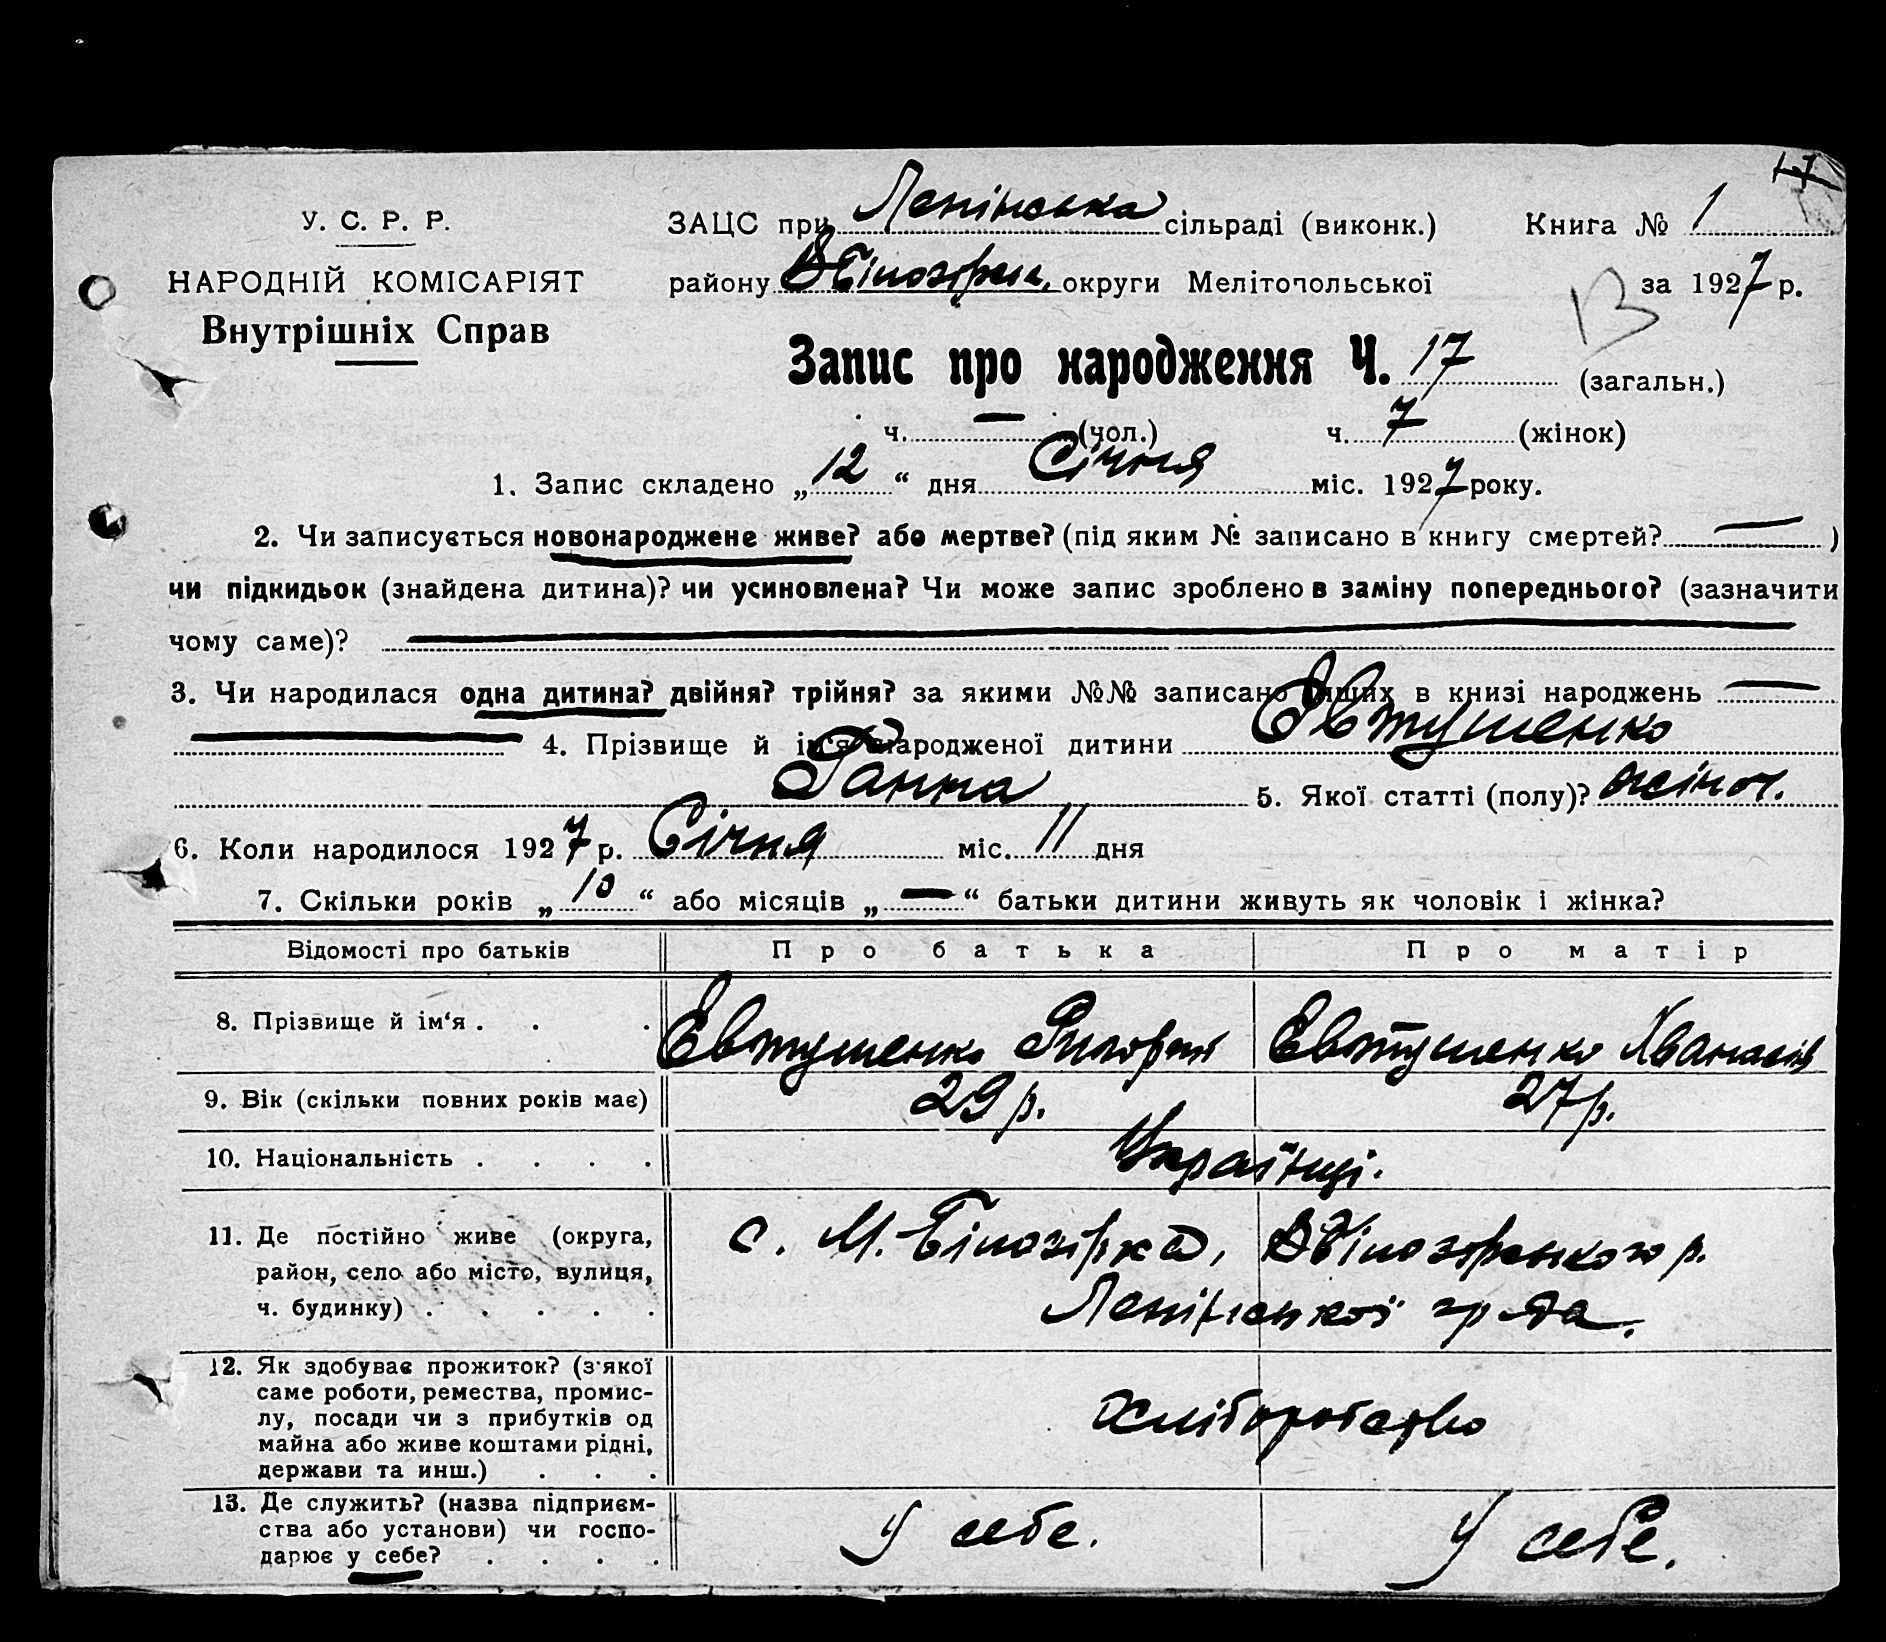 17
У. С. Р. Р.
НАРОДНІЙ КОМІСАРІЯТ
Внутрішніх Справ
ЗАЦС при Ленінська сільраді (виконк.) Книга № 1
району округи Мелітопольської за 1927 р.
Запис про народження Ч. 17 (загальн.)
ч. — (чол.) ч. 7 (жінок)
1. Запис складено „12“ дня Січня міс. 1927 року.
2. Чи записується новонароджене живе? або мертве? (під яким № записано в книгу смертей? — )
чи підкидьок (знайдена дитина)? чи усиновлена? Чи може запис зроблено в заміну попереднього? (зазначити
чому саме)? —
3. Чи народилася одна дитина? двійня? трійня? за якими №№ записано інших в книзі народжень —
— 4. Прізвище й ім'я народженої дитини Євтушенко
Ганна 5. Якої статті (полу)? жіноч.
6. Коли народилося 1927 р. Січня міс. 11 дня
7. Скільки років „10“ або місяців „—“ батьки дитини живуть як чоловік і жінка?
Відомості про батьків Про батька Про матір
8. Прізвище й ім'я . . . Євтушенко Євтушенко
9. Вік (скільки повних років має) 29 р. 27 р.
10. Національність . . . . Українці.
11. Де постійно живе (округа,
район, село або місто, вулиця,
ч. будинку) . . . . .
с. М. Білозірка, р.
Ленінської
12. Як здобуває прожиток? (з'якої
саме роботи, ремества, промис-
лу, посади чи з прибутків од
майна або живе коштами рідні,
держави та инш.) . . .
хліборобство
13. Де служить? (назва підприєм-
ства або установи) чи госпо-
дарює у себе? . . . .
У себе. У себе.